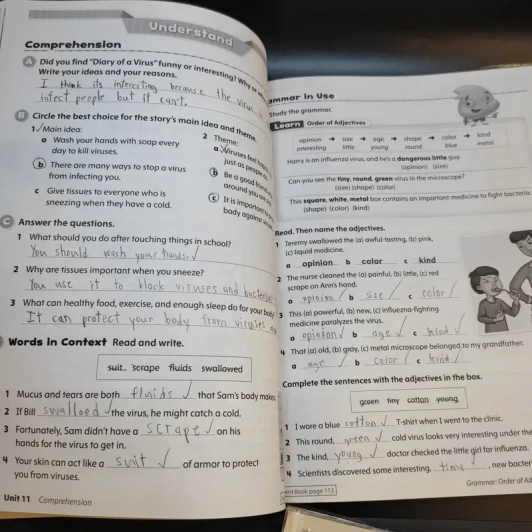 Understand
Comprehension
A Did you find "Diary of a Virus" funny or interesting? Why or
Write your ideas and your reasons.
I think its interesting because the virus
infect people but it can't.
B Circle the best choice for the story's main idea and theme.
1 ✓ Main idea:
a Wash your hands with soap every
day to kill viruses.
b There are many ways to stop a virus
from infecting you.
c Give tissues to everyone who is
sneezing when they have a cold.
2 Theme:
a Viruses feel
just as people
B Be a good
around you
c It is important
body against
C Answer the questions.
1 What should you do after touching things in school?
You should wash your hands. ✓
2 Why are tissues important when you sneeze?
You use it to block viruses and
3 What can healthy food, exercise, and enough sleep do for your body?
It can protect your body from viruses
Words in Context Read and write.
suit scrape fluids swallowed
1 Mucus and tears are both fluids ✓ that Sam's body makes
2 If Bill swalloed the virus, he might catch a cold.
3 Fortunately, Sam didn't have a scrape ✓ on his
hands for the virus to get in.
4 Your skin can act like a suit ✓ of armor to protect
you from viruses.
Unit 11 Comprehension
ammar in Use
Study the grammar.
Learn Order of Adjectives
opinion → size → age → shape → color → kind
interesting little young round blue metal
Harry is an influenza virus, and he's a dangerous little guy.
(opinion) (size)
Can you see the tiny, round, green virus in the microscope?
(size) (shape) (color)
This square, white, metal box contains an important medicine to fight bacteria.
(shape) (color) (kind)
Read. Then name the adjectives.
1 Jeremy swallowed the (a) awful-tasting, (b) pink,
(c) liquid medicine.
a opinion b color c kind
2 The nurse cleaned the (a) painful, (b) little, (c) red
scrape on Ann's hand.
a opinion ✓ b size ✓ c color ✓
3 This (a) powerful, (b) new, (c) influenza-fighting
medicine paralyzes the virus.
a opinion ✓ b age ✓ c kind ✓
4 That (a) old, (b) gray, (c) metal microscope belonged to my grandfather.
a age ✓ b color ✓ c kind ✓
Complete the sentences with the adjectives in the box.
green tiny cotton young
1 I wore a blue cotton ✓ T-shirt when I went to the clinic.
2 This round, green ✓ cold virus looks very interesting under the
3 The kind, young ✓ doctor checked the little girl for influenza.
4 Scientists discovered some interesting, tiny ✓, new
ent Book page 113
Grammar: Order of Ad